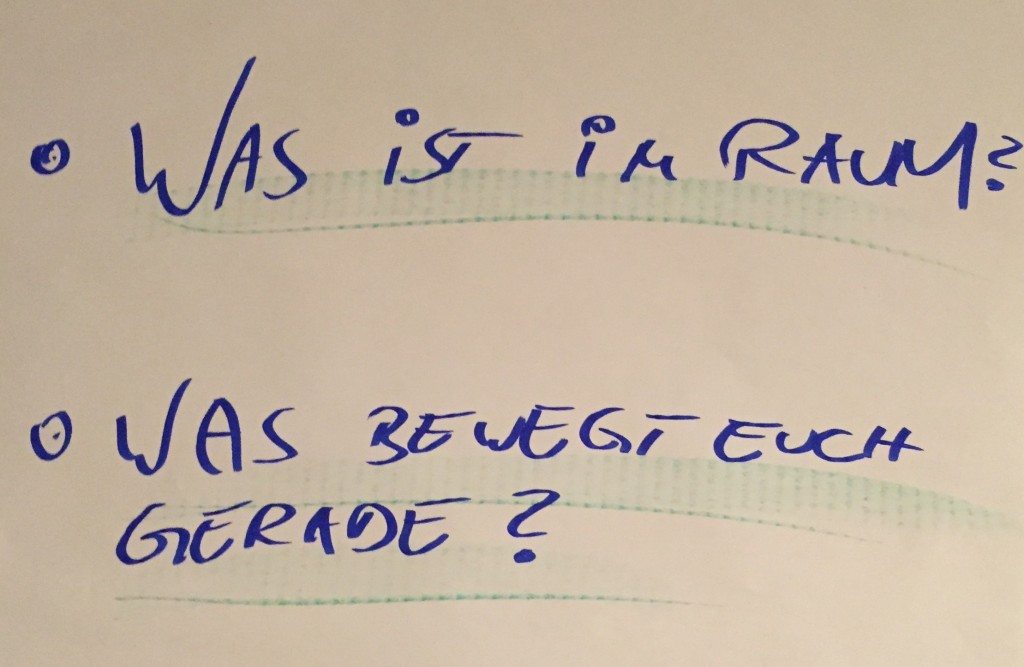 • WAS IST IM RAUM?
• WAS BEWEGT EUCH
GERADE?